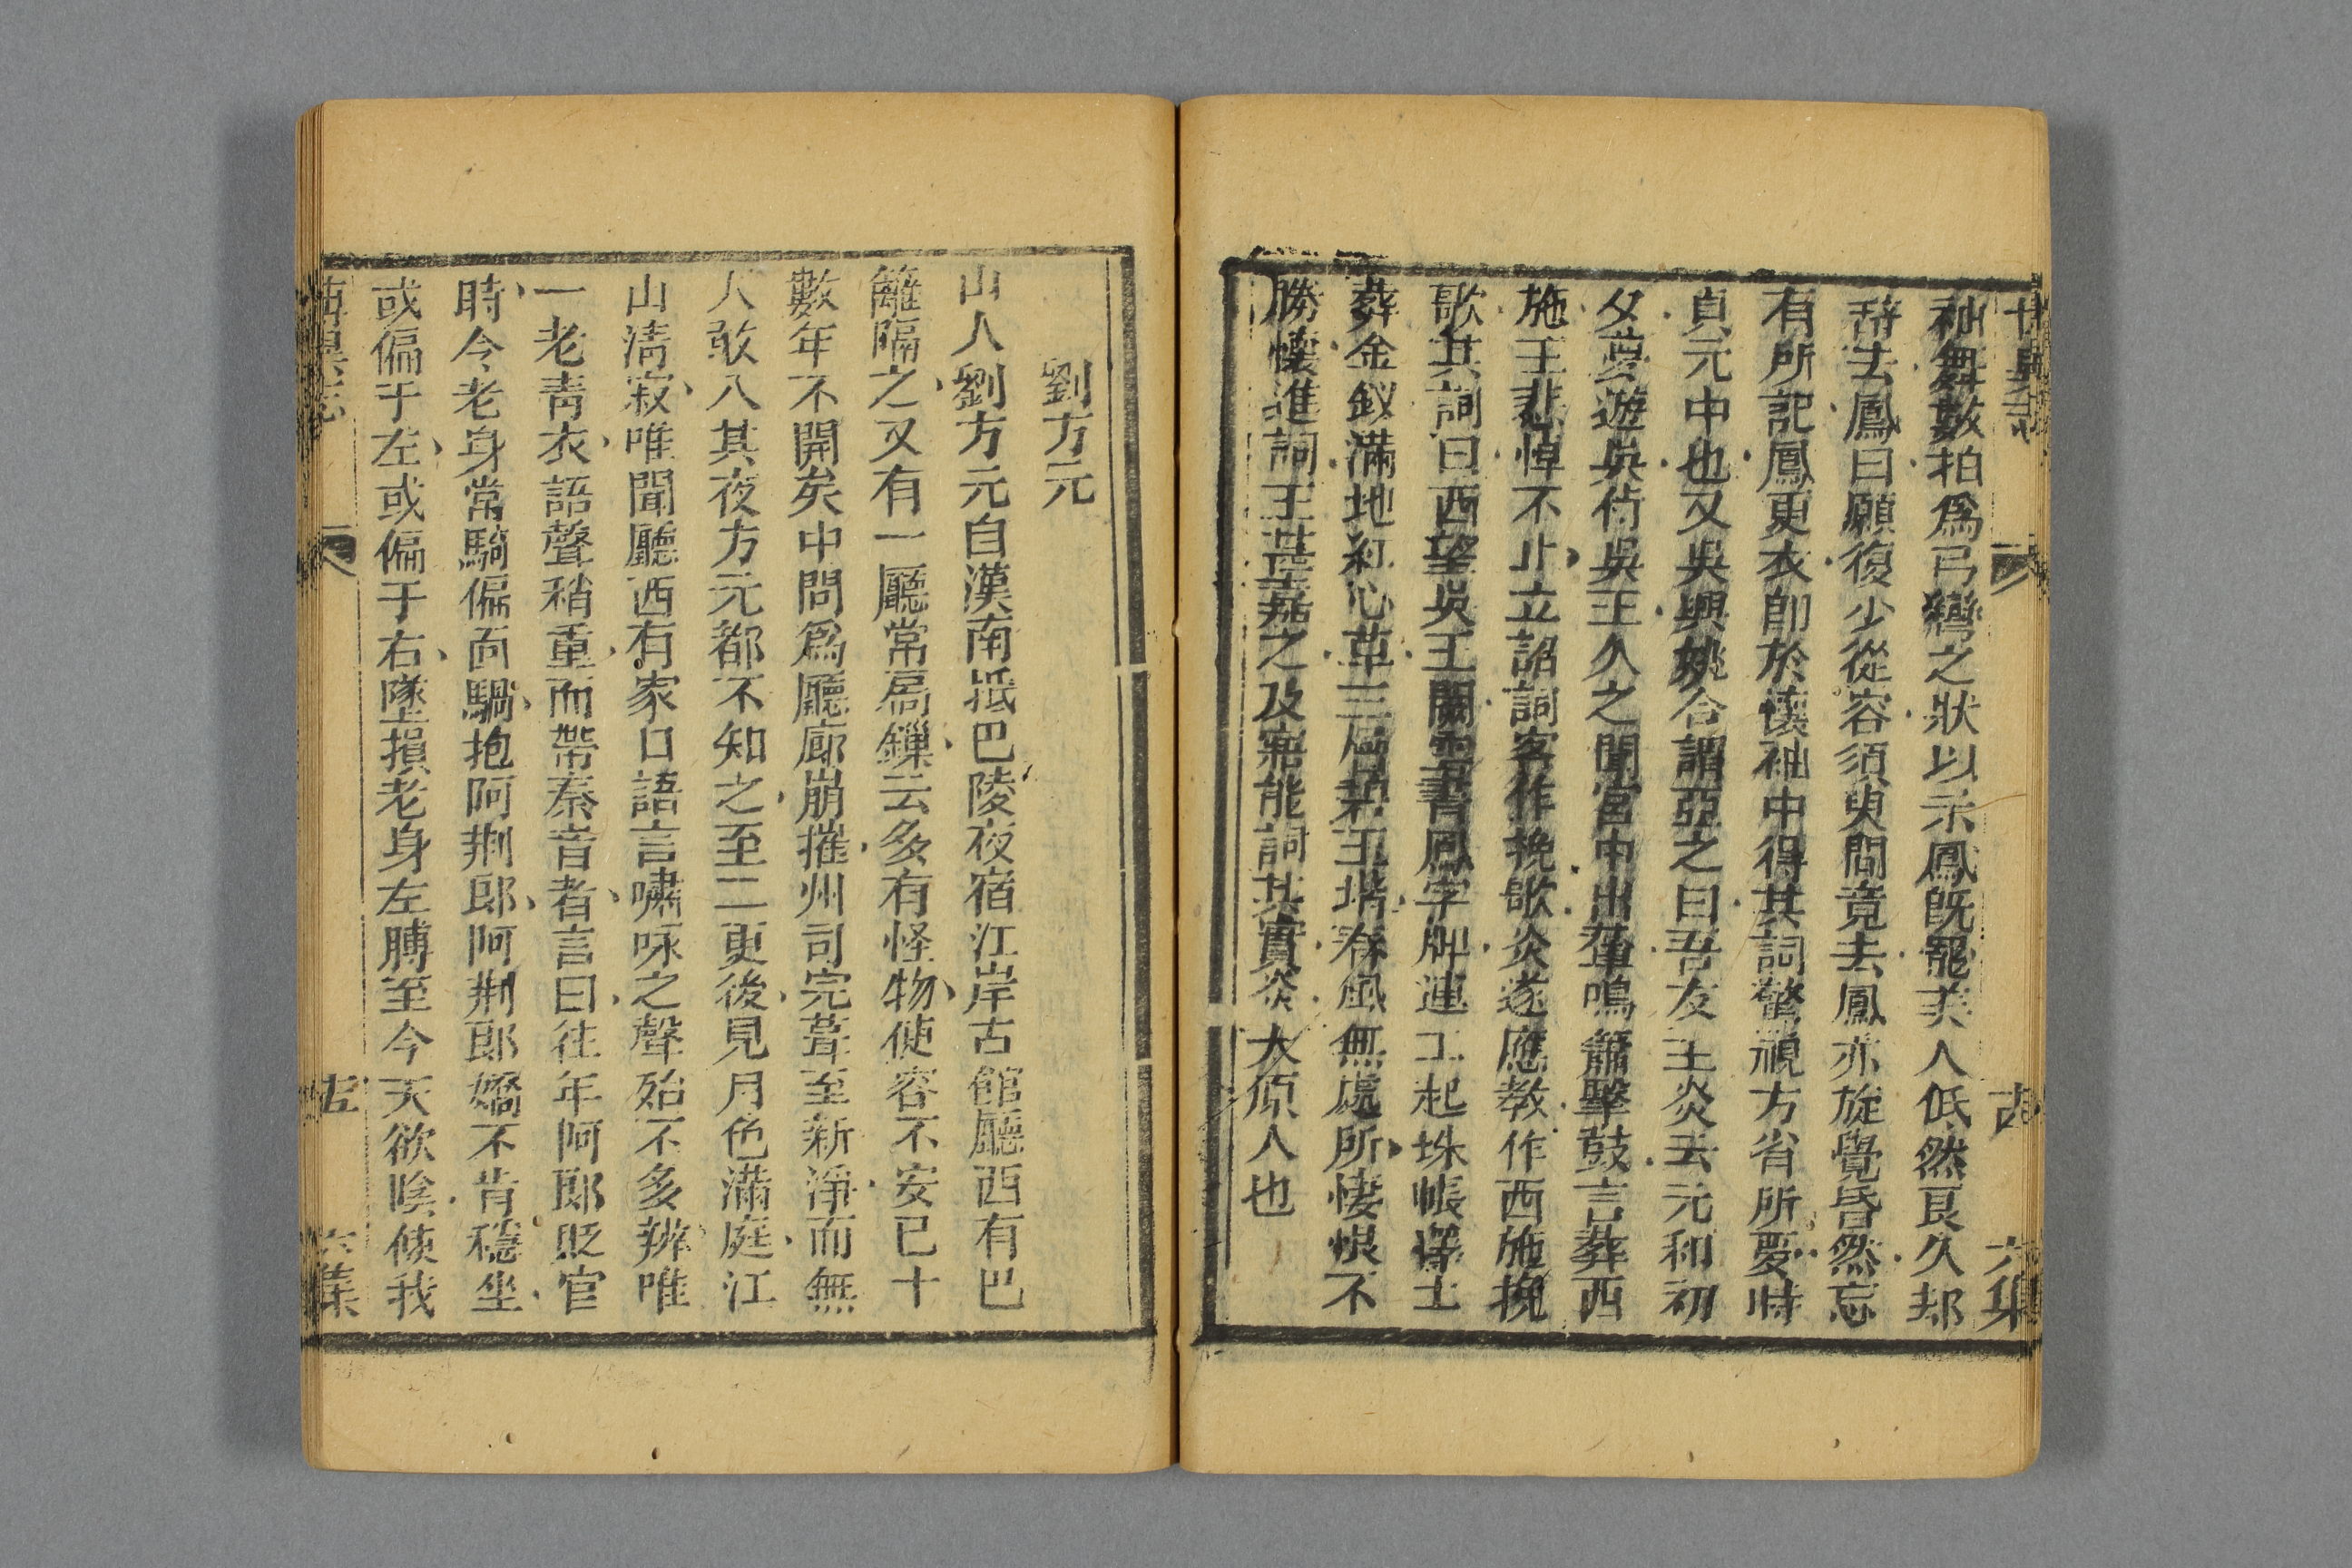 袖舞數拍爲弓彎之狀以示鳳旣罷美人低然良久却
辭去鳳曰願復少從容須臾間竟去鳳亦旋覺昏然忘
有所記鳳更衣卽於懷袖中得其詞驚視方省所夢時
貞元中也又吳興姚合謂亞之曰吾友王炎云元和初
夕夢遊吳侍吳王久之聞宮中出輦鳴簫擊鼓言葬西
施王悲悼不止立詔詞客作挽歌炎遂應教作西施挽
歌其詞曰西望吳王闕雲書鳳字牌連工起珠帳擇土
葬金釵滿地紅心草三層碧玉堦春風無處所悽恨不
勝懷進詞王甚嘉之及寤能詞其實炎太原人也
六集
劉方元
山人劉方元自漢南抵巴陵夜宿江岸古館廳西有巴
籬隔之又有一廳常扃鏁云多有怪物使容不安已十
數年不開矣中間爲廳廊崩摧州司完葺至新淨而無
人敢入其夜方元都不知之至二更後見月色滿庭江
山清寂唯聞廳西有家口語言嘯咏之聲殆不多辨唯
一老靑衣語聲稍重而帶秦音者言曰往年阿郎貶官
時令老身常騎偏面騧抱阿荆郎阿荆郎嬌不肯穩坐
或偏于左或偏于右墜損老身左膊至今天欲陰使我
集